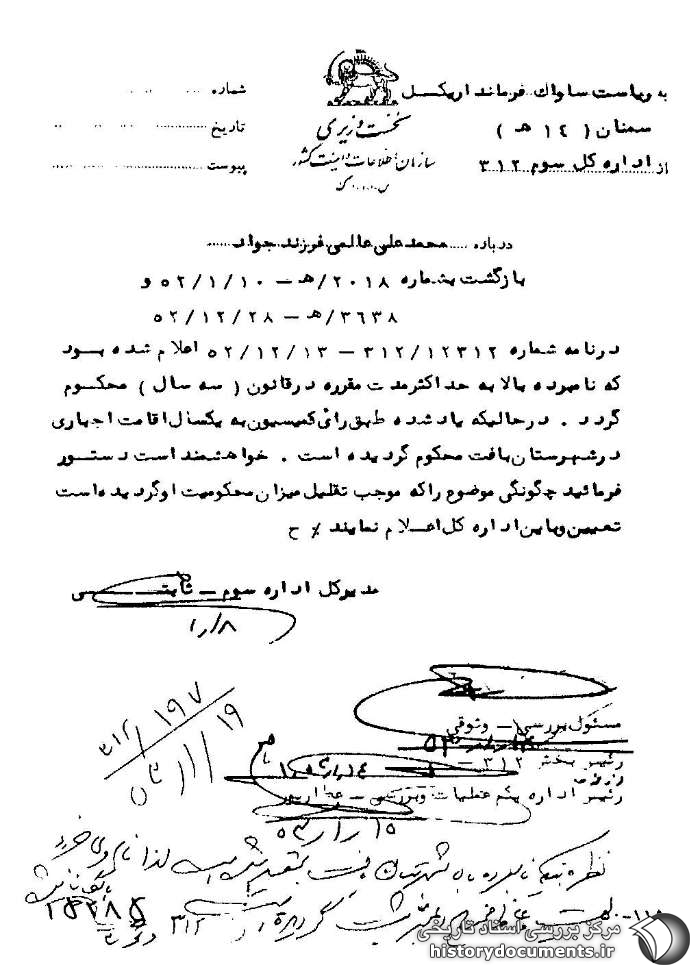 به ریاست ساواک فرمانداریکل
سمنان ( ۱٤ هـ )
از اداره کل سوم ۳۱۲
نخست وزیری
سازمان اطلاعات و امنیت کشور
س.ا.و.ا.ک
شماره
تاریخ
پیوست
درباره محمد علی عالمی فرزند جواد
بازگشت بشماره ۲۰۱۸/هـ – ۵۲/۱/۱۰ و
۳٦۳۸/هـ – ۵۲/۱۲/۲۸
درنامه شماره ۳۱۲/۱۲۳۱۲ – ۵۲/۱۲/۱۳ اعلام شده بود
که نامبرده بالا به حداکثر مدت مقرره در قانون ( سه سال ) محکوم
گردد . در حالیکه یاد شده طبق رأی کمیسیون به یکسال اقامت اجباری
در شهرستان بافت محکوم گردیده است . خواهشمند است دستور
فرمائید چگونگی موضوع را که موجب تقلیل میزان محکومیت او گردیده است
تعیین و باین اداره کل اعلام نمایند ٪ ح
مدیرکل اداره سوم – ثابتی
۱/۸
مسئول بررسی – وثوقی
رئیس بخش ۳۱۲ –
رئیس اداره یکم عملیات و بررسی – عطارپور
۵۳/۱/۱۵
۳۱۲/۱۹۷
۵۳/۱/۱۹
نظر به اینکه نامبرده به شهرستان بافت تبعید شده است لذا نام وی
۳۱۲
مرکز بررسی اسناد تاریخی
historydocuments.ir